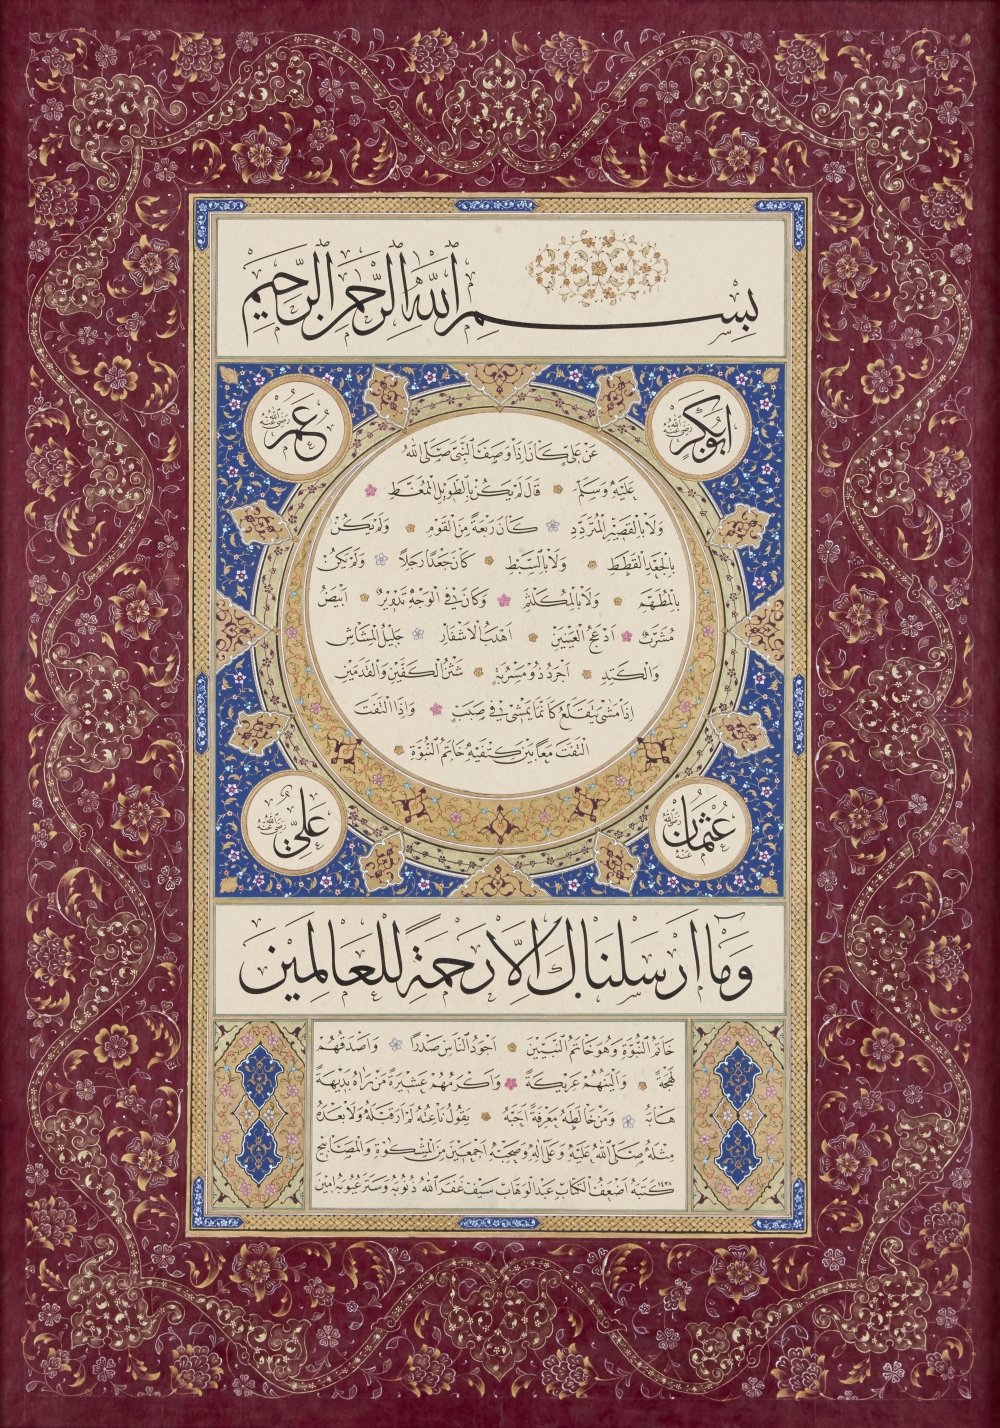 بسم الله الرحمن الرحيم
ابوبكر رضي الله عنه
عمر رضي الله عنه
عن علي كان اذا وصف النبي صلى الله
عليه وسلم قال لم يكن بالطويل الممغط
ولا بالقصير المتردد كان ربعة من القوم ولم يكن
بالجعد القطط ولا بالسبط كان جعدا رجلا ولم يكن
بالمطهم ولا بالمكلثم وكان في الوجه تدوير ابيض
مشرب ادعج العينين اهدب الاشفار جليل المشاش
والكتد اجرد ذو مسربة شثن الكفين والقدمين
اذا مشى يتقلع كانما يمشي في صبب واذا التفت
التفت معا بين كتفيه خاتم النبوة
عثمان رضي الله عنه
علي رضي الله عنه
وما ارسلناك الا رحمة للعالمين
خاتم النبوة وهو خاتم النبيين اجود الناس صدرا واصدقهم
لهجة والينهم عريكة واكرمهم عشيرة من راه بديهة
هابه ومن خالطه معرفة احبه يقول ناعته لم ار قبله ولا بعده
مثله صلى الله عليه وعلى اله وصحبه اجمعين من المشكوة والمصابيح
كتبه اضعف الكتاب عبد الوهاب سيف غفر الله ذنوبه وستر عيوبه امين ١٤٣٨